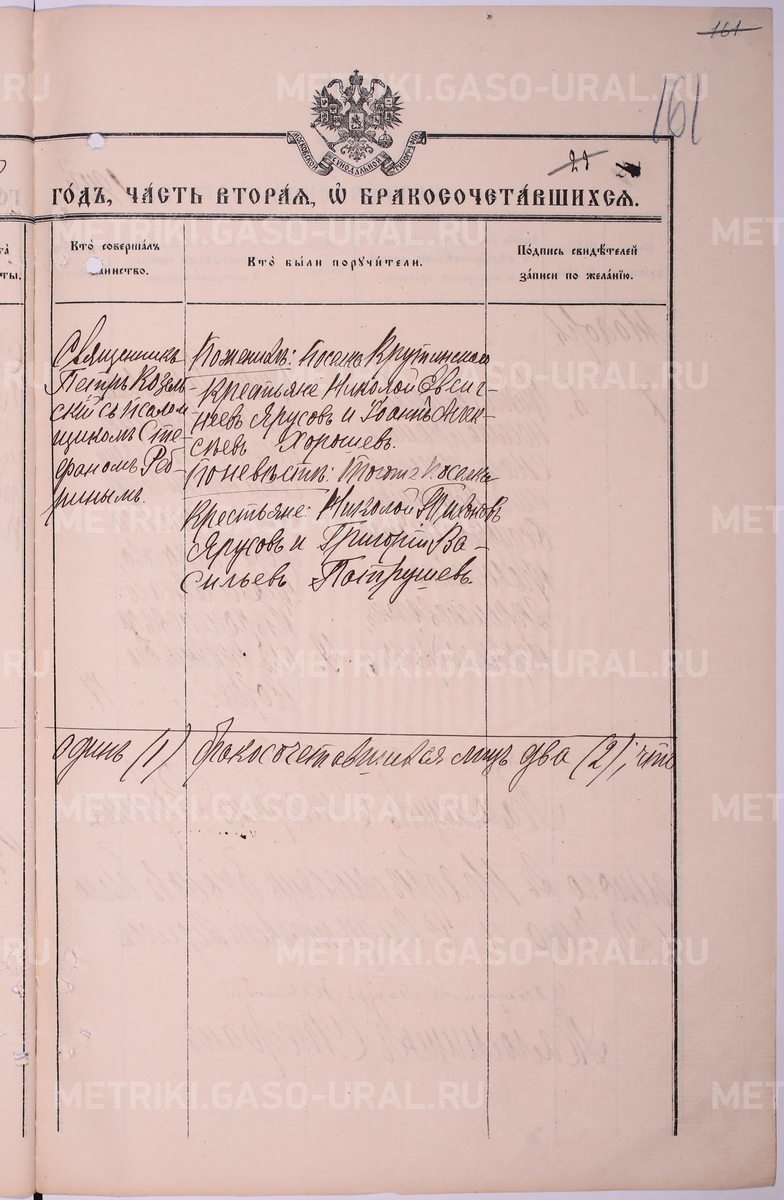 161
161
МОСКОВСКОЙ СѴНОДАЛЬНОЙ ТИПОГРАФІИ
25
ГО́ДЪ, ЧА́СТЬ ВТОРА́Я, Ѡ҆ БРАКОСОЧЕТА́ВШИХСЯ.
Кто̀ соверша́лъ
таинство.
Кто̀ бы́ли порꙋчи́тели.
По́дпись свидѣ́телей
за́писи по жела́нїю.
Священникъ
Петръ Козель-
скій съ псалом
щикомъ Сте
фаномъ Реб-
ринымъ.
По женихѣ: поселка Крутинскаго
крестьяне Николай Евсиг-
неевъ Ярусовъ и Іоаннъ Алек-
сѣевъ Хорошевъ.
По невѣстѣ: того же поселка
крестьяне: Николай Тихоновъ
Ярусовъ и Григорій Ва-
сильевъ Потрушевъ.
одинъ (1) бракосочетавшихся лицъ два (2); что
METRIKI.GASO-URAL.RU